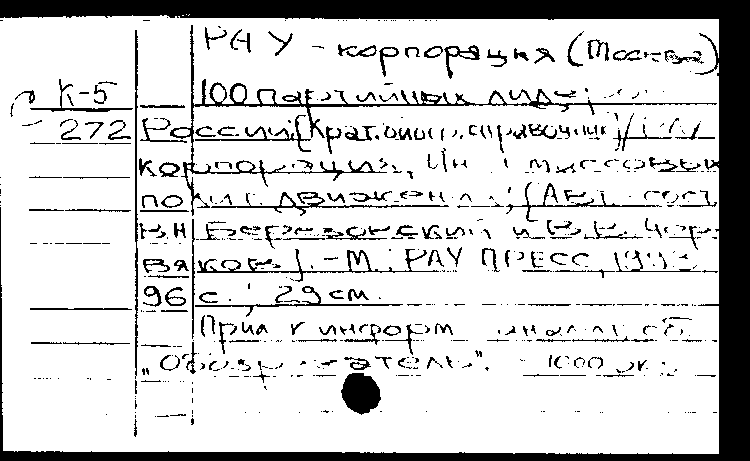 РАУ - корпорация (Москва)
К-5 100 партийных лиде
272 России: [Крат. биогр. справочник] / РАУ
корпорация, Ин массовых
полит. движений; [Авт.-сост.
В.Н. Березовский и В.В. Чер-
вяков]. - М.: РАУ ПРЕСС, 1993
96 с.; 29 см.
Прил к информ аналит. сб.
„Обозреватель". - 1000 экз